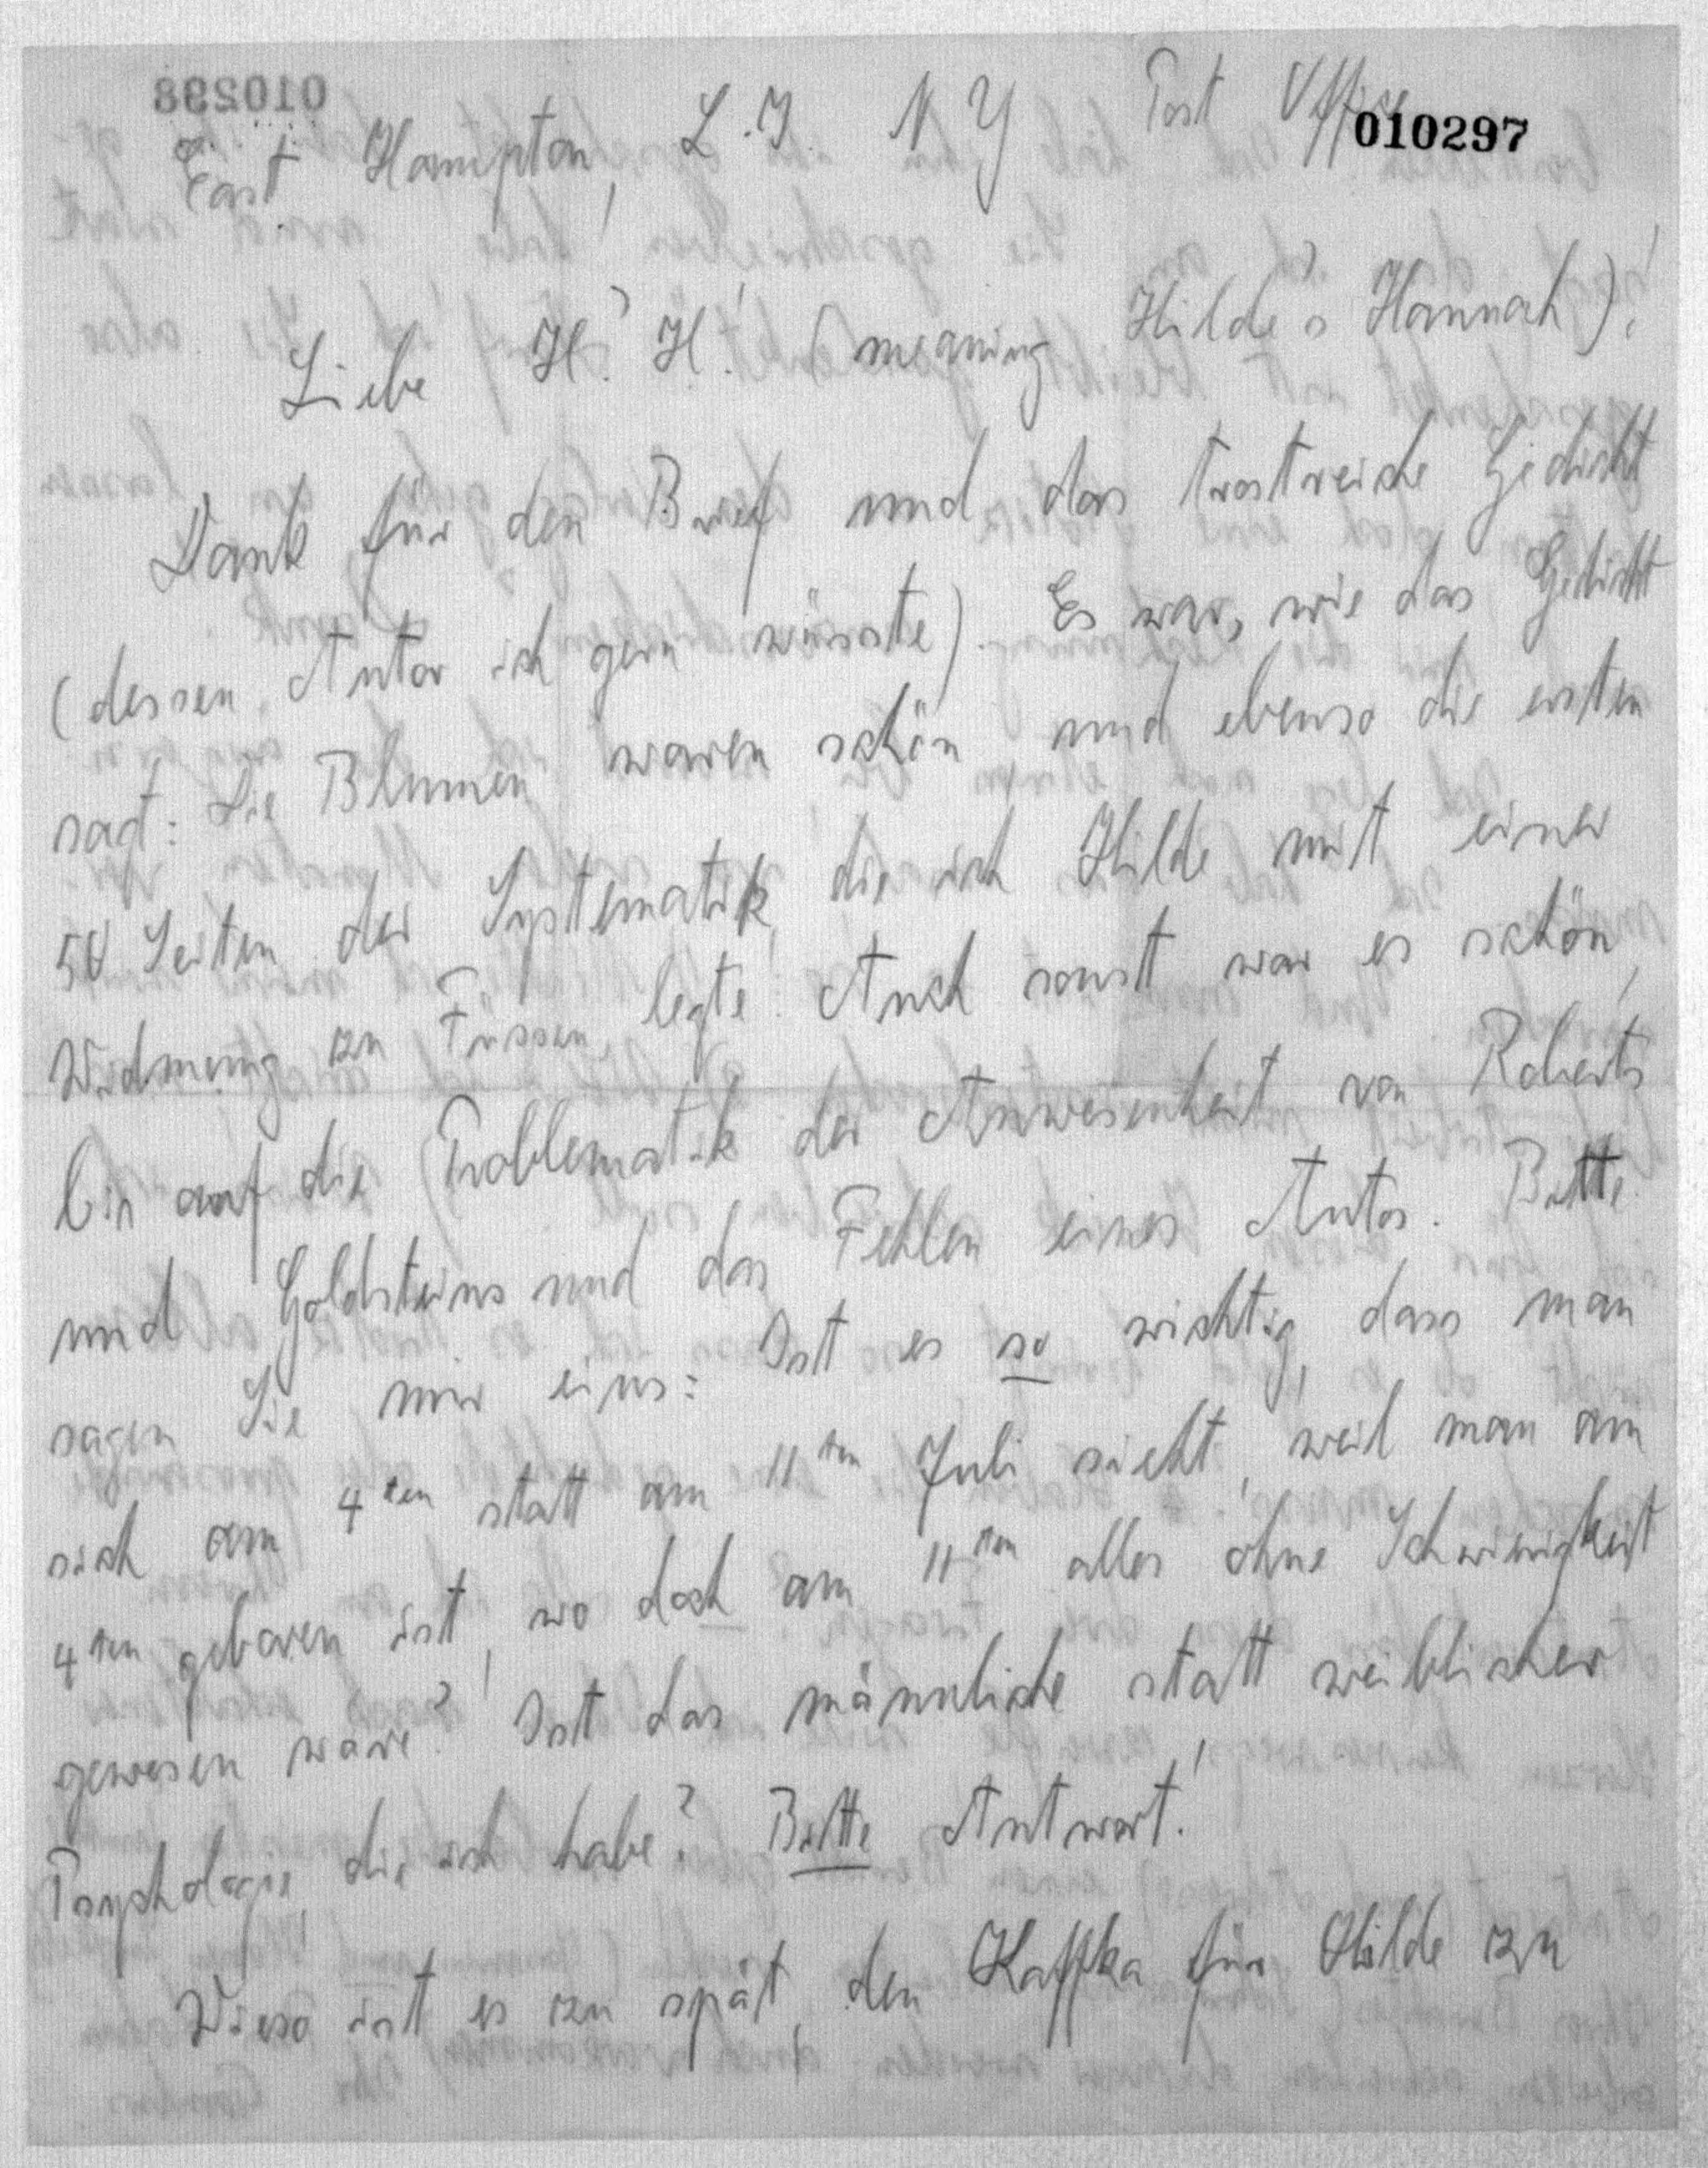 010297
East Hampton, L.I. N Y Post Office
Liebe H's H! (meaning Hilde's Hannah)!
Dank für den Brief und das trostreiche Gedicht
(dessen Autor ich gern wüsste). Es war, wie das Gedicht
sagt: Die Blumen waren schön, und ebenso die ersten
50 Seiten der Systematik, die ich Hilde mit einer
Widmung zu Füssen legte! Auch sonst war es schön,
bis auf die Problematik der Anwesenheit von Roberts
und Goldsteins und das Fehlen eines Autos. Bitte
sagen Sie mir eins: Ist es so wichtig, dass man
sich am 4ten statt am 11ten Juli sieht, weil man am
4ten geboren ist, wo doch am 11ten alles ohne Schwierigkeit
gewesen wäre? Ist das männliche statt weiblicher
Psychologie, die ich habe? Bitte Antwort!
Wieso ist es zu spät, den Kaffka für Hilde zu